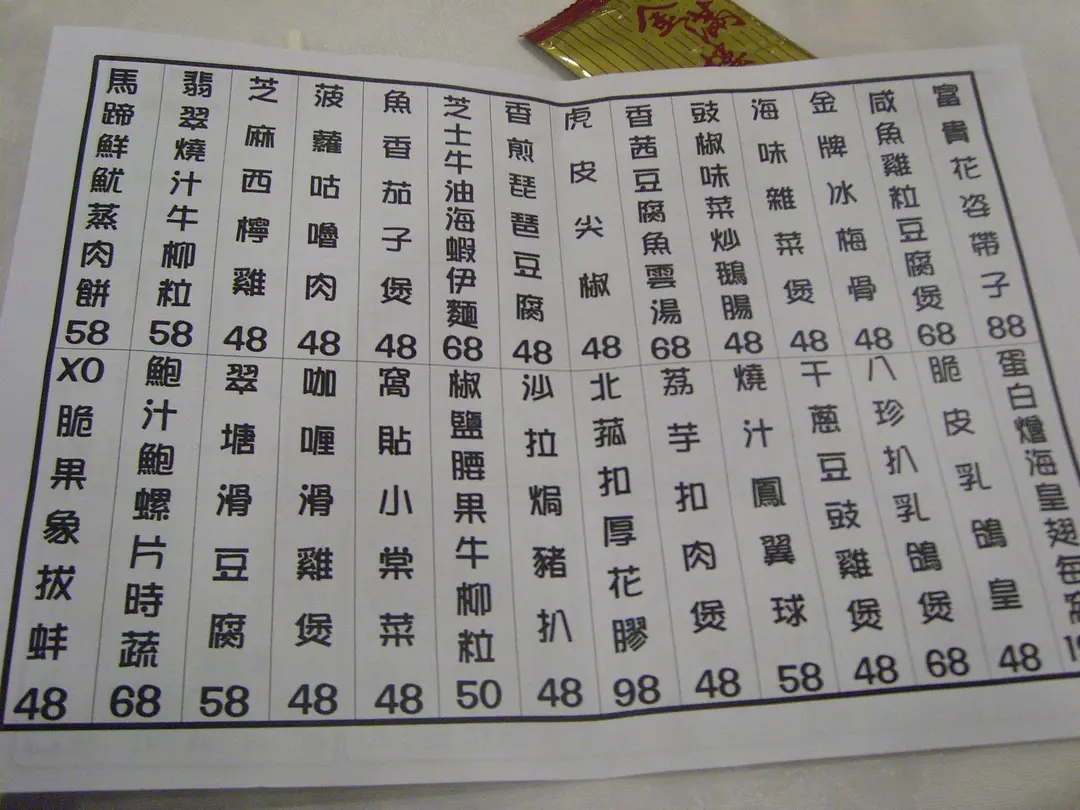 富貴花姿帶子 88
咸魚雞粒豆腐煲 68
金牌冰梅骨 48
海味雜菜煲 48
豉椒味菜炒鵝腸 48
香茜豆腐魚雲湯 68
虎皮尖椒 48
香煎琵琶豆腐 48
芝士牛油海蝦伊麵 68
魚香茄子煲 48
菠蘿咕嚕肉 48
芝麻西檸雞 48
翡翠燒汁牛柳粒 58
馬蹄鮮魷蒸肉餅 58
蛋白燴海皇翅每
脆皮乳鴿皇 48
八珍扒乳鴿煲 68
干蔥豆豉雞煲 48
燒汁鳳翼球 58
荔芋扣肉煲 48
北菰扣厚花膠 98
沙拉焗豬扒 48
椒鹽腰果牛柳粒 50
窩貼小棠菜 48
咖喱滑雞煲 48
翠塘滑豆腐 58
鮑汁鮑螺片時蔬 68
XO脆果象拔蚌 48